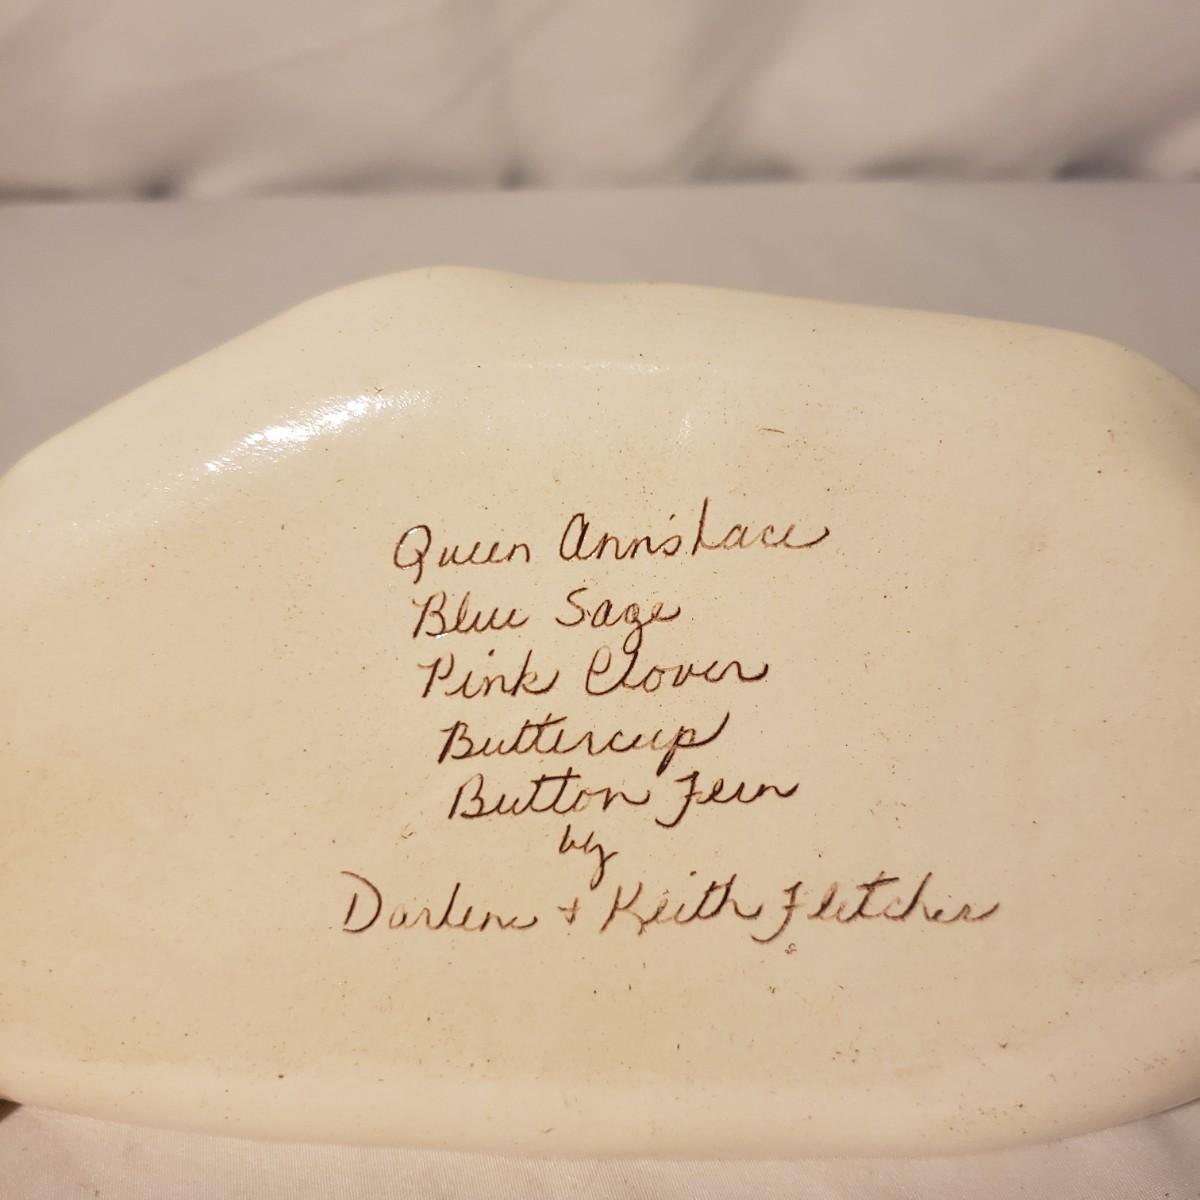 Queen Ann's Lace
Blue Sage
Pink Clover
Buttercup
Button Fern
by
Darlene + Keith Fletcher